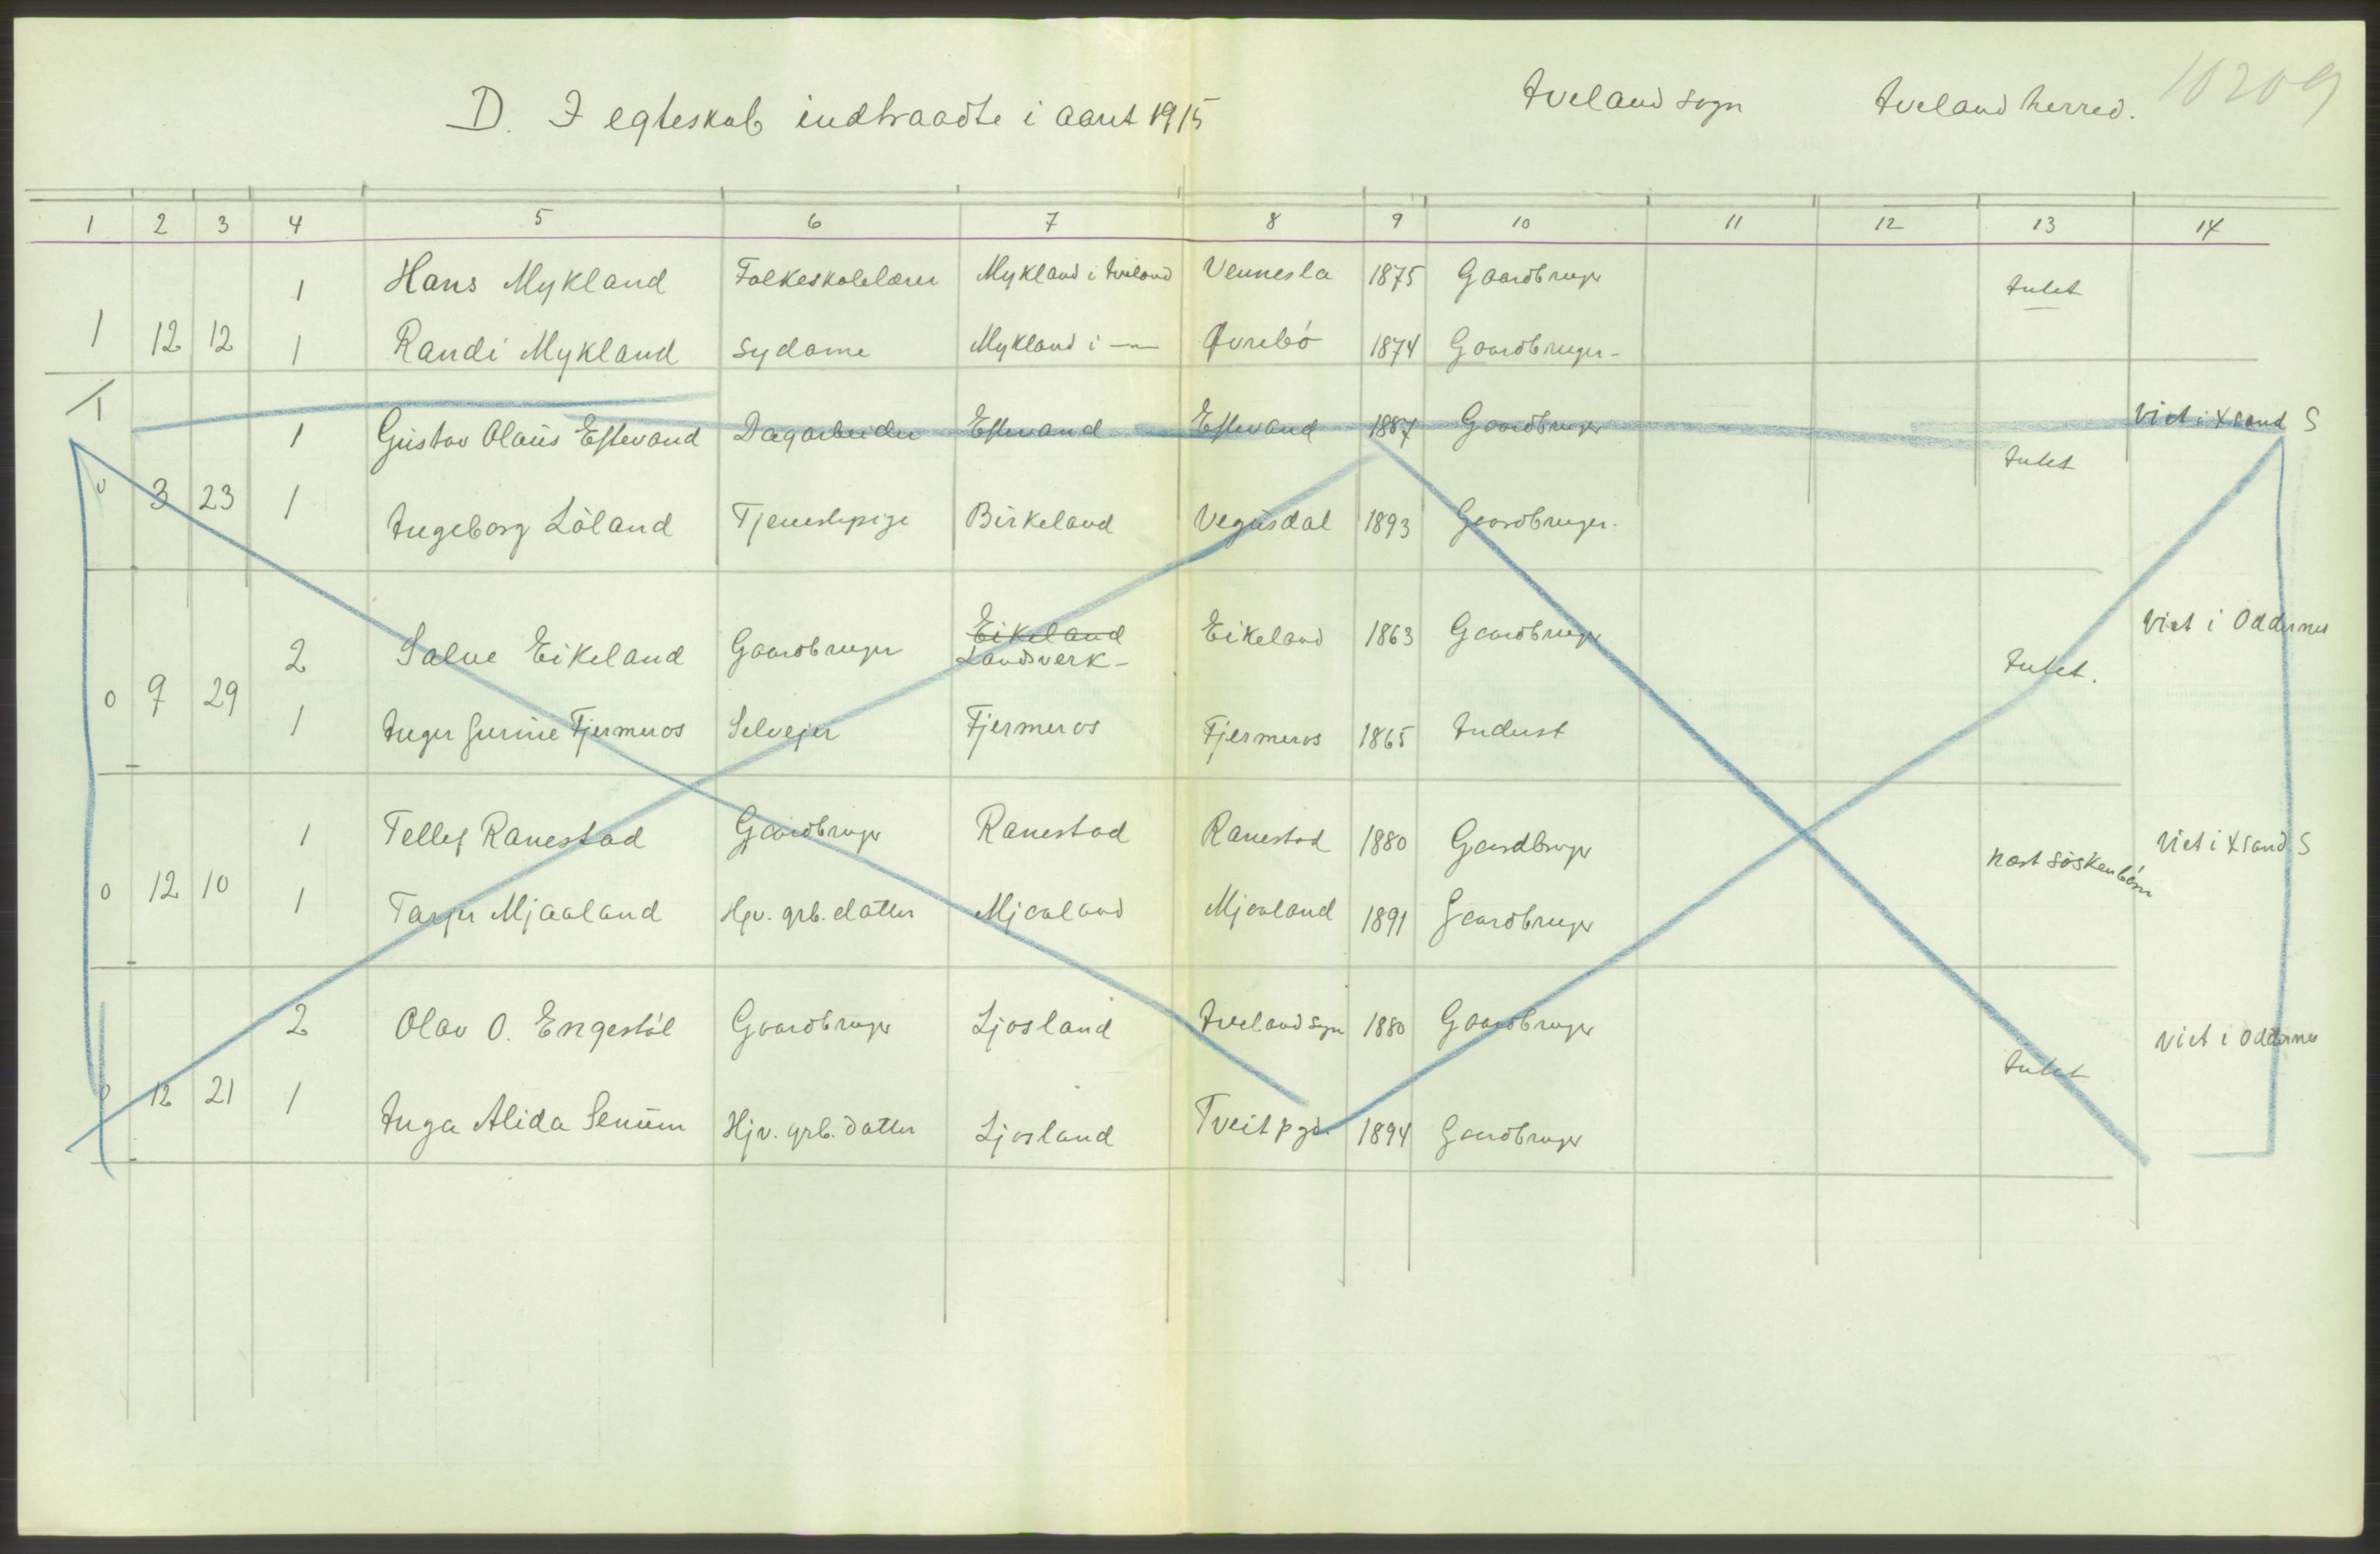 D. I egteskab indtraadte i aaret 1915
Iveland sogn Iveland herred. 10209
1 2 3 4 5 6 7 8 9 10 11 12 13 14
1 Hans Mykland Folkeskolelærer Mykland i Iveland Vennesla 1875 Gaardbruger Intet
1 12 12 1 Randi Mykland Sydame Mykland i —"— Øvrebö 1874 Gaardbruger -
1
1 Gustav Olaus Eftevand Dagarbeider Eftevand Eftevand 1887 Gaardbruger Viet i Xsand S
Intet
0 3 23 1 Ingeborg Löland Tjenestepige Birkeland Vegusdal 1893 Gaardbruger.
2 Salve Eikeland Gaardbruger Eikeland Eikeland 1863 Gaardbruger Viet i Oddernes
Landsverk - Intet.
0 9 29 1 Inger Gurine Fjermeros Selvejer Fjermeros Fjermeros 1865 Indust
1 Tellef Ranestad Gaardbruger Ranestad Ranestad 1880 Gaardbruger Viet i Xsand S
næst söskenbörn
0 12 10 1 Tarjer Mjaaland Hjv. grb. datter Mjaaland Mjaaland 1891 Gaardbruger
2 Olav O. Engestöl Gaardbruger Ljosland Iveland sogn 1880 Gaardbruger Viet i Oddernes
Intet
0 12 21 1 Inga Alida Senum Hjv. grb. datter Ljosland Tveit pgd. 1894 Gaardbruger